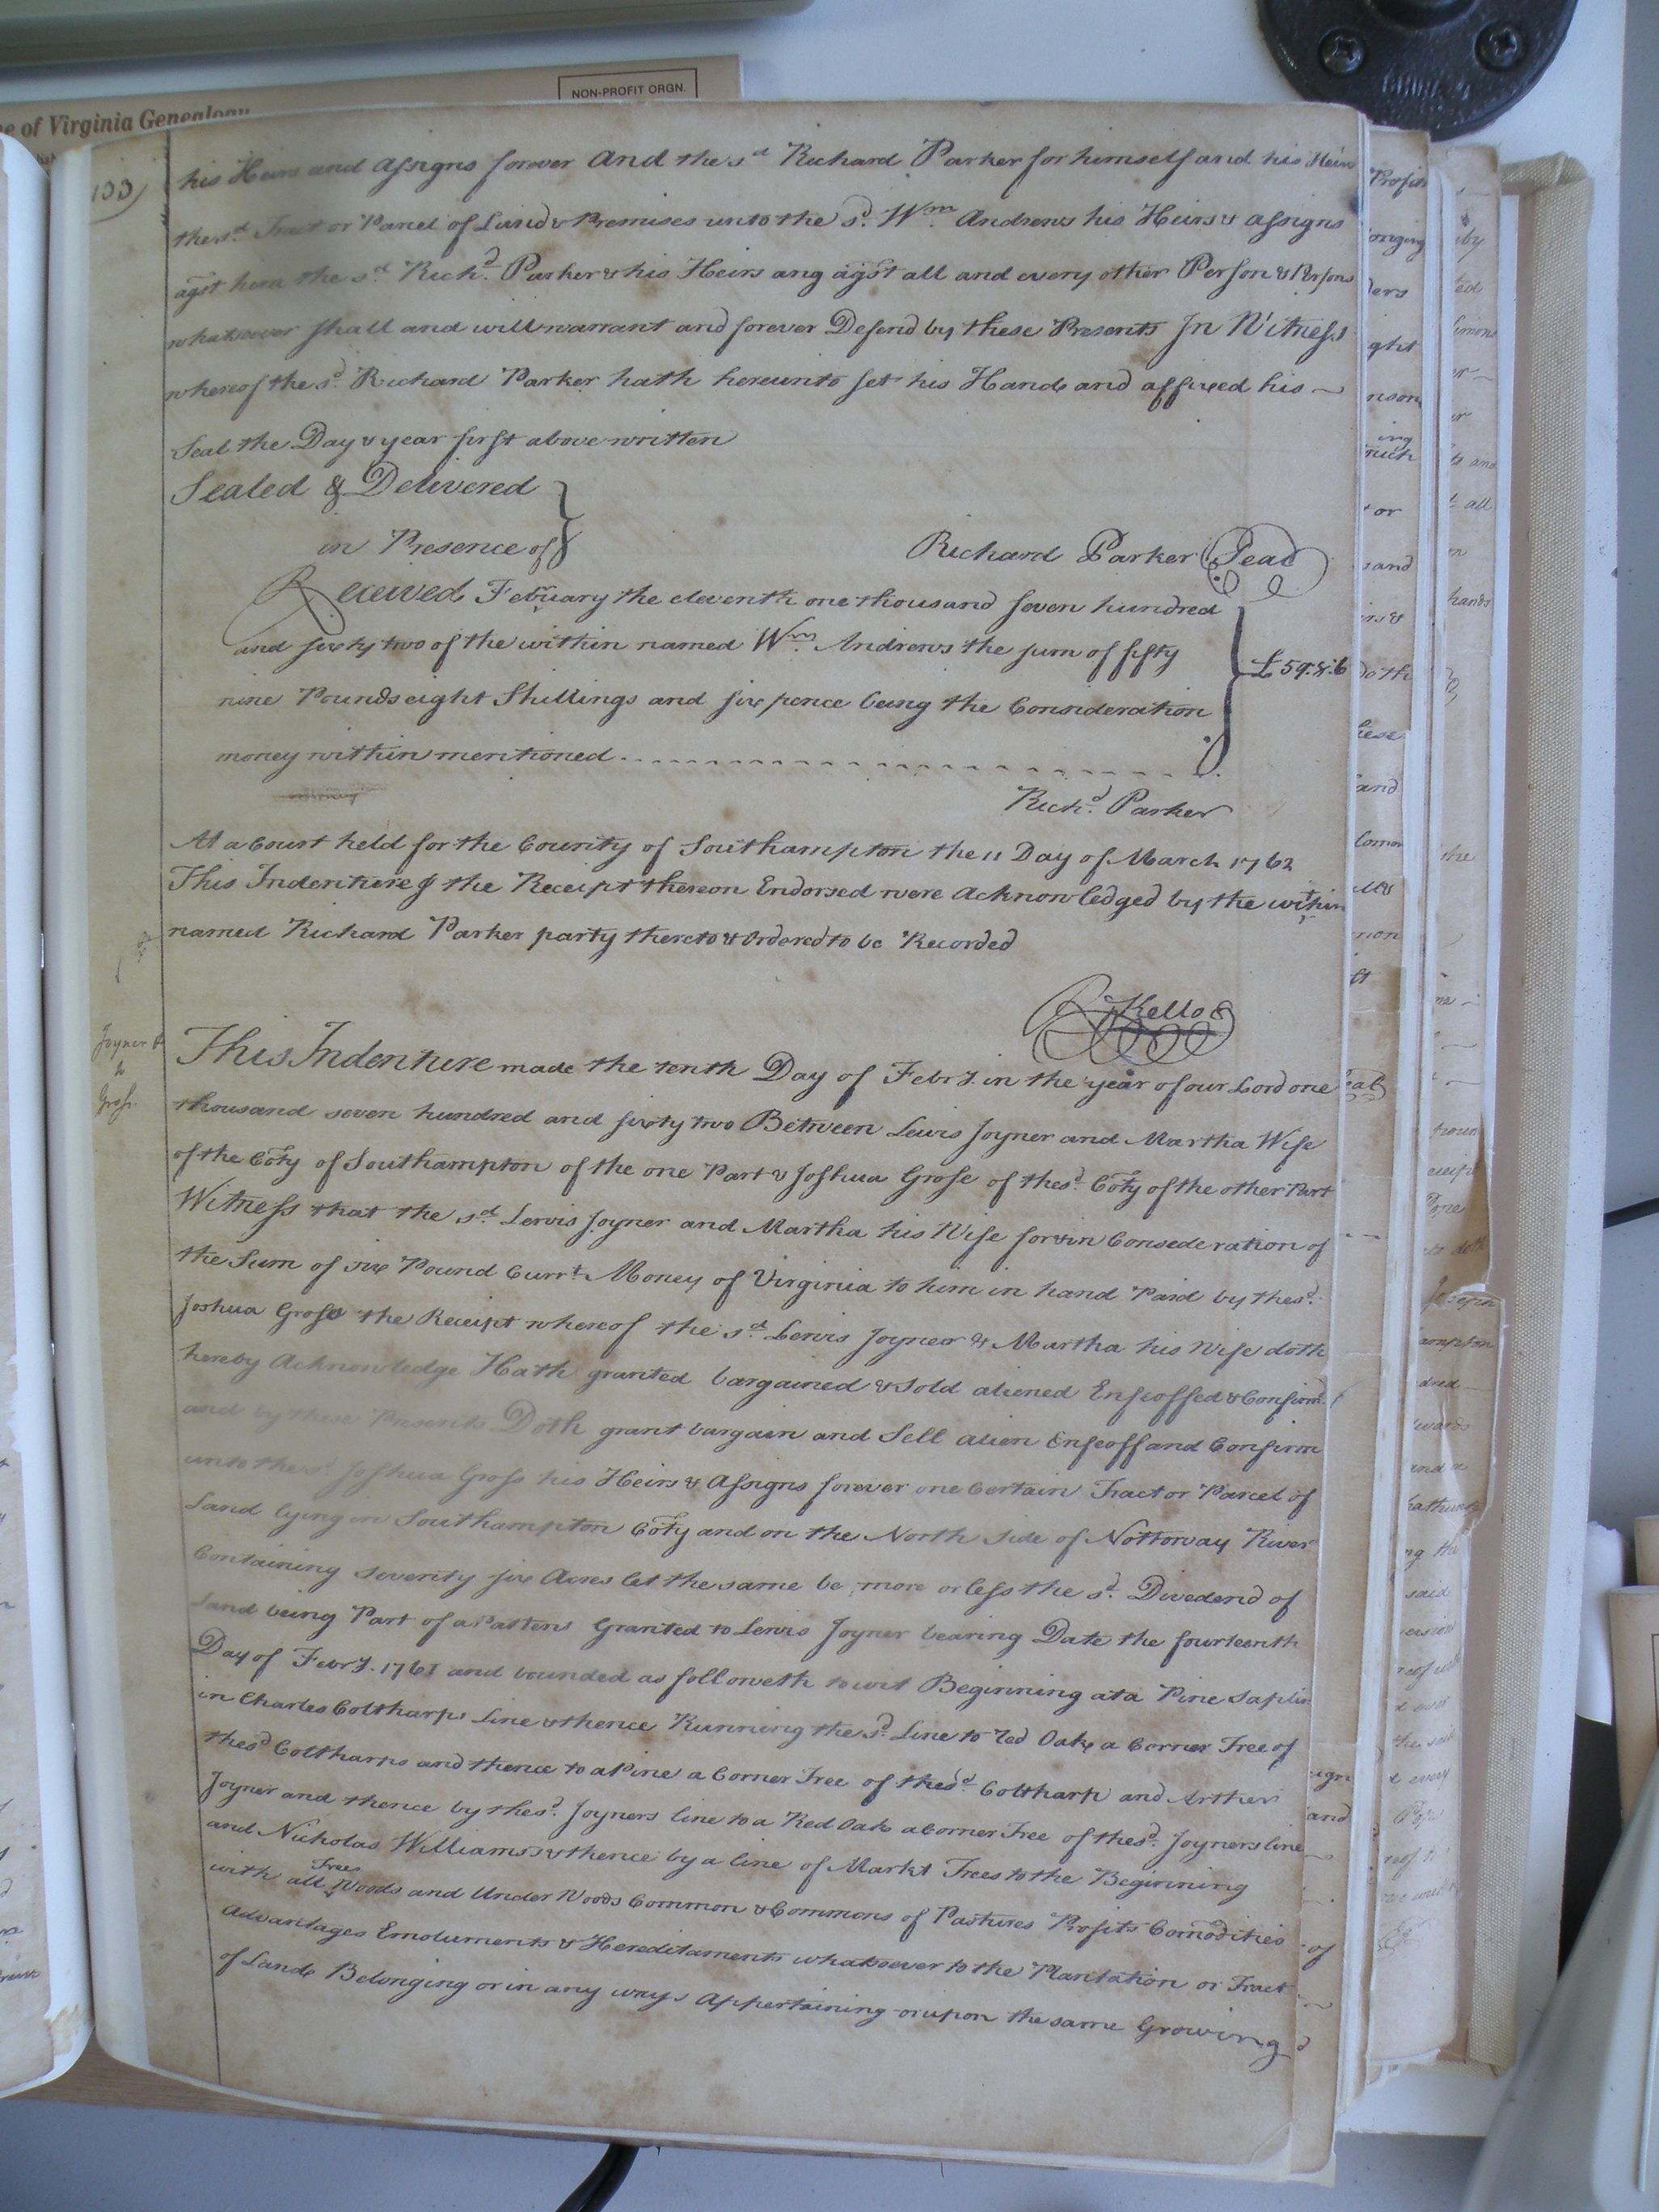 NON-PROFIT ORGN.
of Virginia Genealogy
133
his Heirs and Assigns forever And the sd Richard Parker for himself and his Heirs
the sd. Tract or Parcel of Land & Premises unto the sd. Wm. Andrews his Heirs & assigns
agst him the sd Richd. Parker & his Heirs ang agst all and every other Person & Persons
whatsoever shall and will warrant and forever Defend by these Presents In Witness
whereof the sd. Richard Parker hath hereunto set his Hand and affixed his
Seal the Day & year first above written
Sealed & Delivered
in Presence of
Richard Parker Seal
Received February the eleventh one thousand seven hundred
and sixty two of the within named Wm. Andrews the sum of fifty
£59.8.6
nine Pounds eight Shillings and six pence being the Consideration
money within mentioned
Richd. Parker
At a Court held for the County of Southampton the 11 Day of March 1762
This Indenture & the Receipt thereon Endorsed were Acknowledged by the within
named Richard Parker party thereto & Ordered to be Recorded
R Kello
Joyner &
to
Grose
This Indenture made the tenth Day of Febry. in the year of our Lord one
thousand seven hundred and sixty two Between Lewis Joyner and Martha Wife
of the Coty of Southampton of the one Part & Joshua Grose of the sd. Coty of the other Part
Witness that the sd. Lewis Joyner and Martha his Wife for & in Consederation of
the Sum of six Pound Currt. Money of Virginia to him in hand Paid by the sd.
Joshua Grose the Receipt whereof the sd. Lewis Joyner & Martha his Wife doth
hereby Acknowledge Hath granted bargained & Sold aliened Enfeoffed & Confirmd.
and by these Presents Doth grant bargain and Sell alien Enfeoff and Confirm
unto the sd. Joshua Gross his Heirs & Assigns forever one Certain Tract or Parcel of
Land lying in Southampton Coty and on the North Side of Nottoway River
Containing seventy six Acres let the same be more or less the sd. Divedend of
Land being Part of a Patten Granted to Lewis Joyner bearing Date the fourteenth
Day of Febry. 1761 and bounded as followeth to wit Beginning at a Pine Saplin
in Charles Coltharps Line & thence Running the sd. Line to Red Oak a Corner Tree of
the sd Coltharps and thence to a Pine a Corner Tree of the sd. Coltharp and Arther
Joyner and thence by the sd. Joyners line to a Red Oak a Corner Tree of the sd. Joyners line
and Nicholas Williams's & thence by a line of Markt Trees to the Beginning
with all Trees Woods and Under Woods Common & Commons of Pastures Profits Comodities
Advantages Emoluments & Hereditaments whatsoever to the Plantation or Tract
of Land Belonging or in any ways Appertaining or upon the same Growing